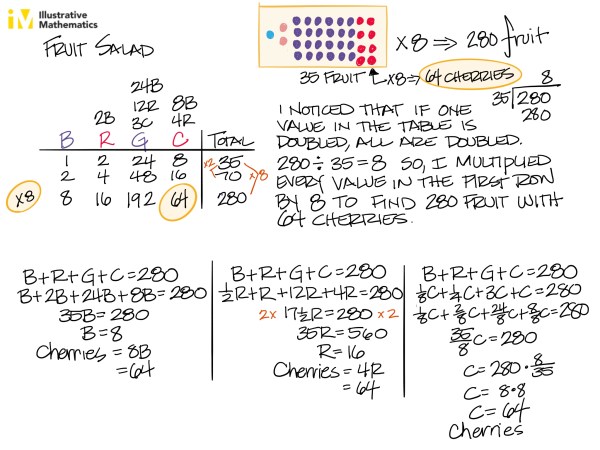 Illustrative
Mathematics
FRUIT SALAD
×8 ⇒ 280 fruit
35 FRUIT ×8⇒ 64 CHERRIES
8
35 280
280
24B
12R 8B
2B 3C 4R
B R G C TOTAL
1 2 24 8 35
×2
2 4 48 16 70
×8
×8 8 16 192 64 280
I NOTICED THAT IF ONE
VALUE IN THE TABLE IS
DOUBLED, ALL ARE DOUBLED.
280 ÷ 35 = 8 SO, I MULTIPLIED
EVERY VALUE IN THE FIRST ROW
BY 8 TO FIND 280 FRUIT WITH
64 CHERRIES.
B+R+G+C=280
B+2B+24B+8B=280
35B=280
B=8
Cherries = 8B
=64
B+R+G+C=280
½R+R+12R+4R=280
2× 17½R=280 ×2
35R=560
R=16
Cherries=4R
=64
B+R+G+C=280
⅛C+¼C+3C+C=280
1/8C+2/8C+24/8C+8/8C=280
35/8 C=280
C=280·8/35
C=8·8
C=64
Cherries